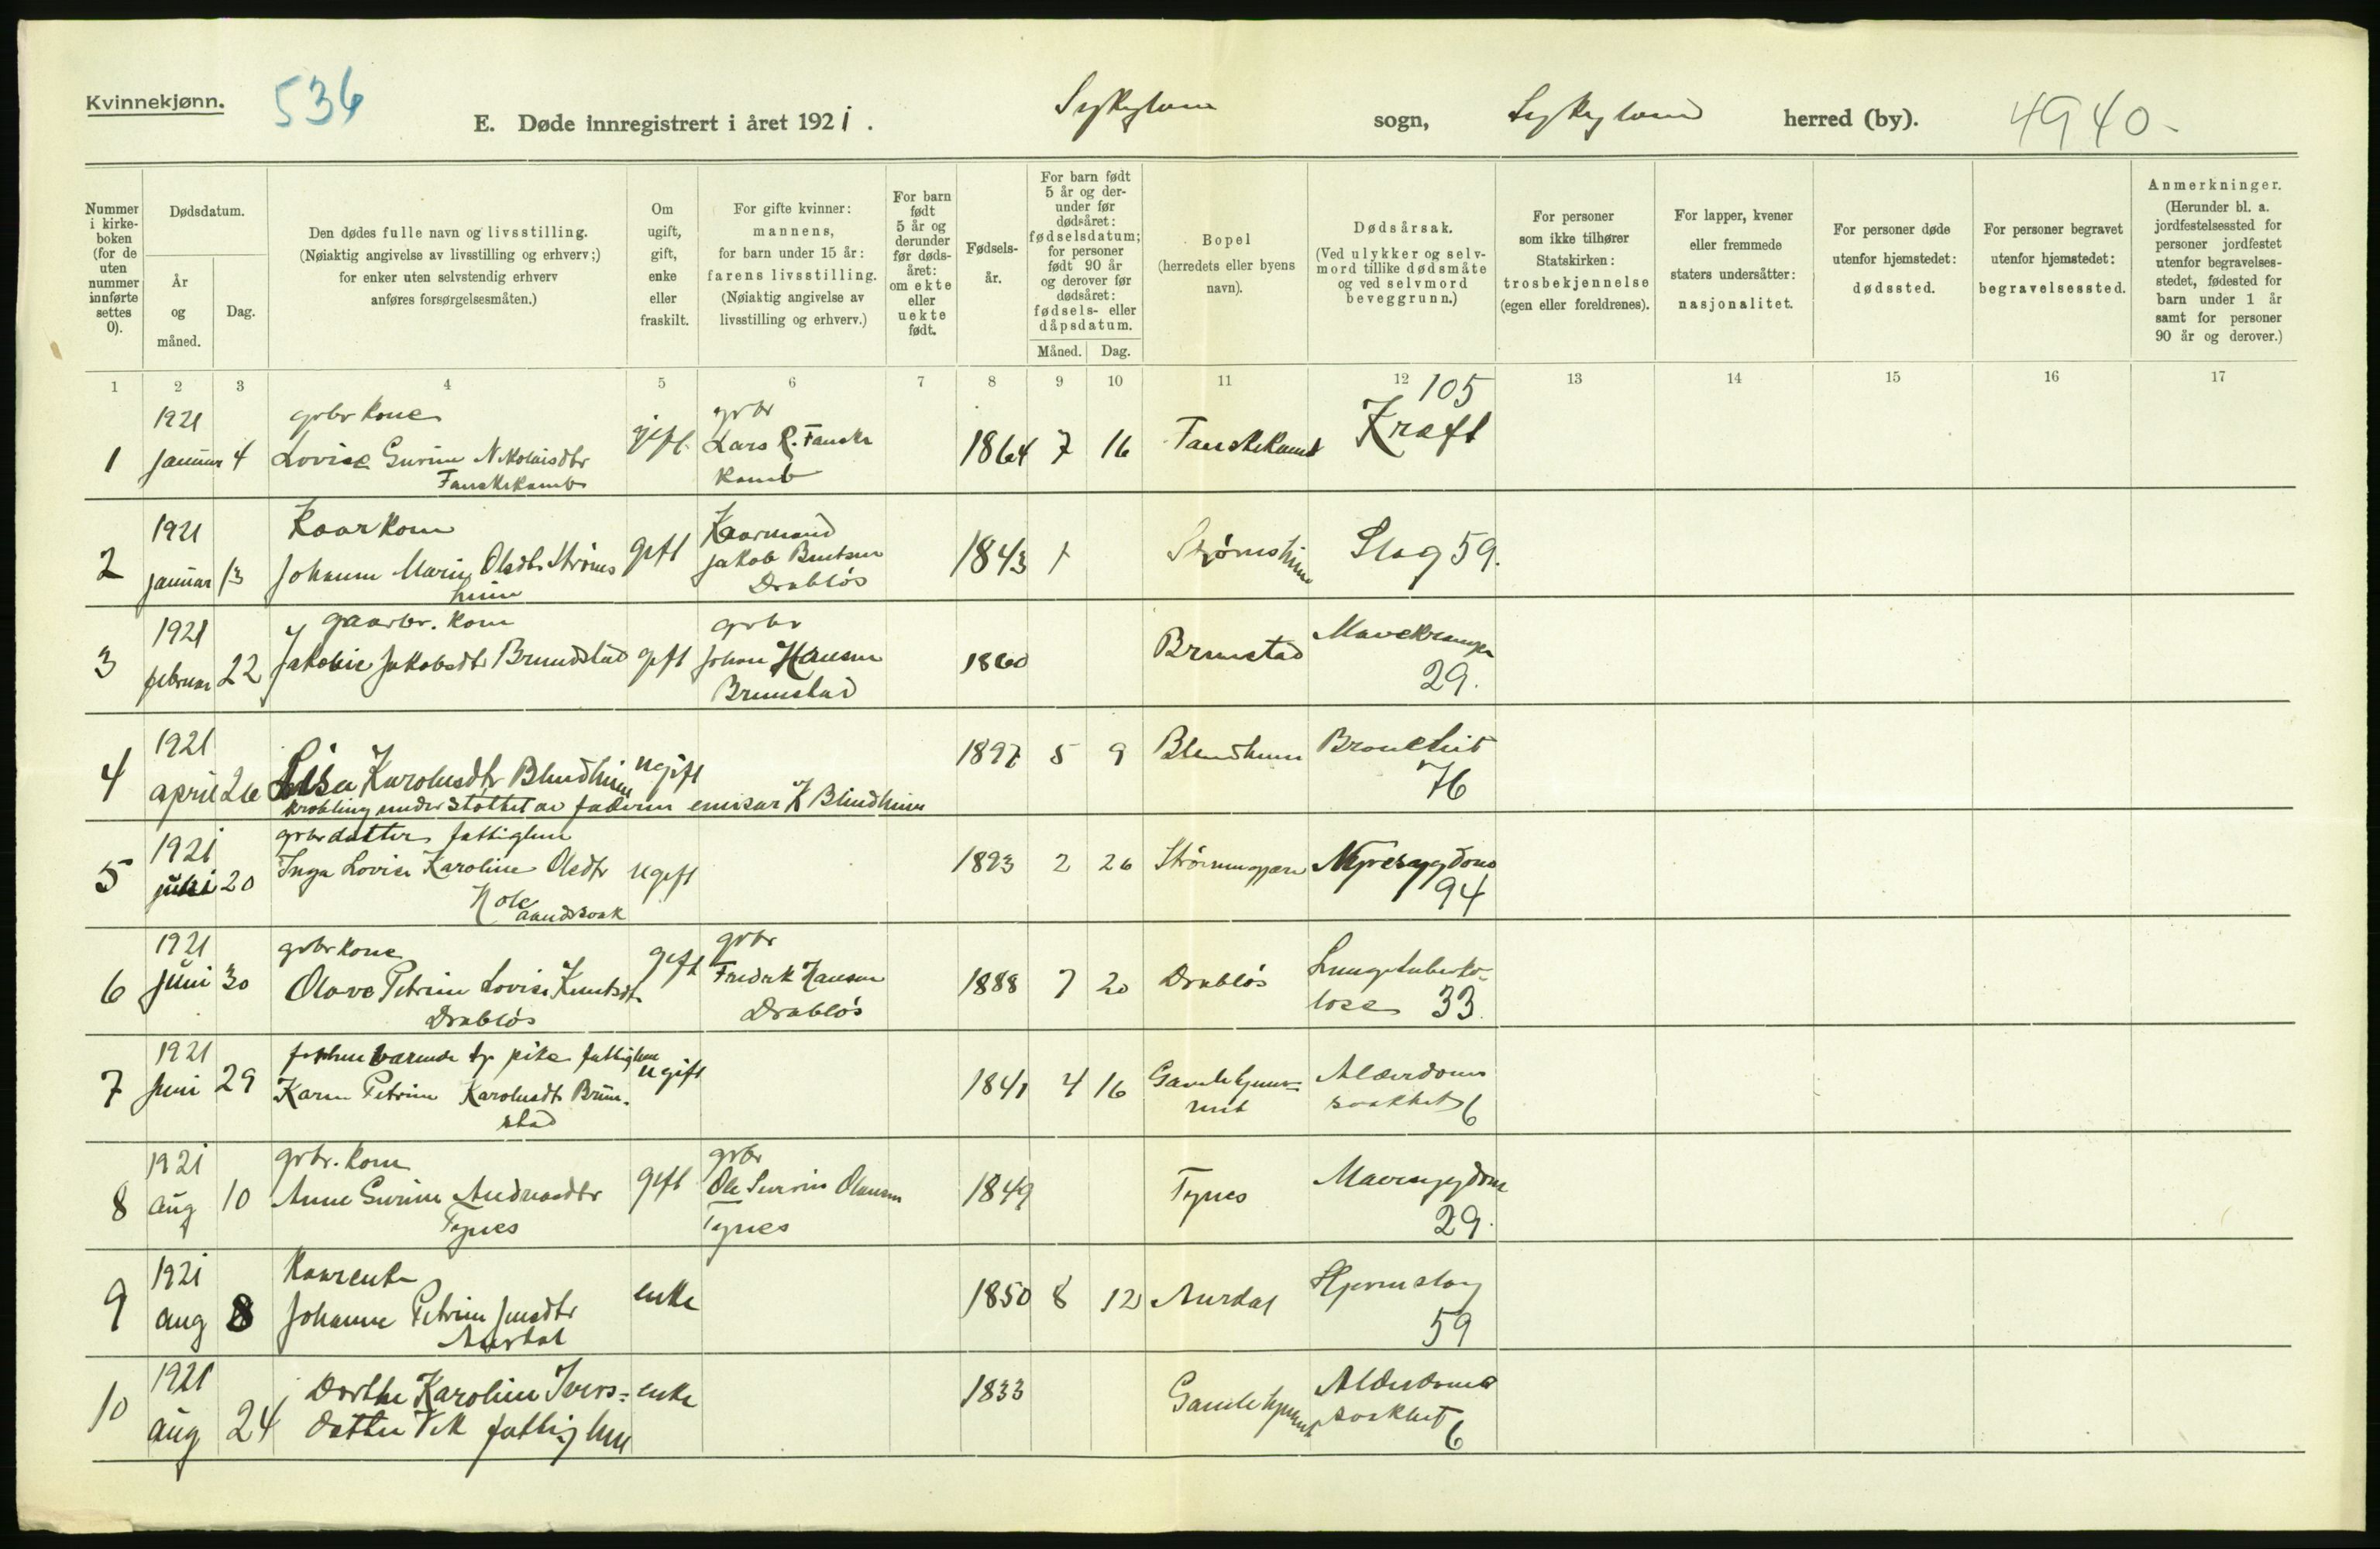 Kvinnekjønn.
536
E. Døde innregistrert i året 1921.
Sykylven sogn,
Sykylven herred (by).
4940-
Nummer i kirkeboken (for de uten nummer innførte settes 0).
Dødsdatum.
År og måned.
Dag.
Den dødes fulle navn og livsstilling.
(Nøiaktig angivelse av livsstilling og erhverv;)
for enker uten selvstendig erhverv
anføres forsørgelsesmåten.)
Om ugift, gift, enke eller fraskilt.
For gifte kvinner:
mannens,
for barn under 15 år:
farens livsstilling.
(Nøiaktig angivelse av
livsstilling og erhverv.)
For barn født 5 år og derunder før dødsåret: om ekte eller uekte født.
Fødselsår.
For barn født 5 år og derunder før dødsåret: fødselsdatum; for personer født 90 år og derover før dødsåret: fødsels- eller dåpsdatum.
Måned. Dag.
Bopel
(herredets eller byens
navn).
Dødsårsak.
(Ved ulykker og selvmord tillike dødsmåte og ved selvmord beveggrunn.)
For personer som ikke tilhører Statskirken:
trosbekjennelse
(egen eller foreldrenes).
For lapper, kvener eller fremmede staters undersåtter:
nasjonalitet.
For personer døde utenfor hjemstedet:
dødssted.
For personer begravet utenfor hjemstedet:
begravelsessted.
Anmerkninger.
(Herunder bl. a. jordfestelsessted for personer jordfestet utenfor begravelsesstedet, fødested for barn under 1 år samt for personer 90 år og derover.)
1 2 3 4 5 6 7 8 9 10 11 12 13 14 15 16 17
105
1921 grbr kone grbr
1 januar 4 Lovise Gurine Nikolaisdtr gift Lars R. Fauske 1864 7 16 Fauskekamb Kræft
Fauskekamb kamb
1921 Kaarkone Kaarmand
2 januar 13 Johanne Marie Olsdtr Strøms gift Jakob Bentsen 1843 1 Strømsheim Slag 59.
heim Drabløs
1921 gaardbr. kone grbr
3 februar 22 Jakobie Jakobsdtr Brundstad gift Johan Hansen 1860 Brunstad Mavekramper
Brunstad 29.
1921
4 april 26 Lisa Karolusdtr Blindheim ugift 1897 5 9 Blindheim Bronchit
krøbling understøttet av faderen emisær K Blindheim 76
1921 grbrdatter fattiglem
5 juli 20 Inga Lovise Karoline Olsdtr ugift 1893 2 26 Nyresygdom
Hole 94
aandssvak
1921 grbrkone grbr
6 juni 30 Olave Petrine Lovise Knutsdtr gift Fredrik Hansen 1888 7 20 Drabløs Lungetuberku-
Drabløs Drabløs lose 33.
1921 pike fattiglem
7 juni 29 Karen Petrine Karolusdtr Brun- ugift 1841 4 16 Gamlehjem- Alderdoms
stad met svakhet 6
1921 grbr. kone grbr
8 aug 10 Anne Gurine Andreasdtr gift Ole Severin Olausen 1849 Tynes Mavesygdom
Tynes Tynes 29.
1921 Kaarenke
9 aug 8 Johanne Petrine Jensdtr enke 1850 8 12 Aurdal Hjerneslag
Aurdal 59
1921
10 aug 24 Dorthe Karoline Ivers- enke 1833 Gamlehjemmet Alderdoms
datter Vik fattiglem svakhet
6